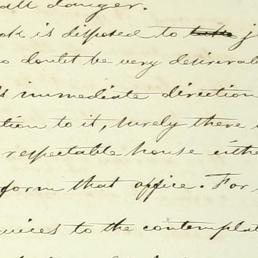 all danger.
ok is disposed to take j
o doubt be very desirable
's immediate direction
tion to it, surely there i
respectable house eithe
form that office. For
vices to the contemplat